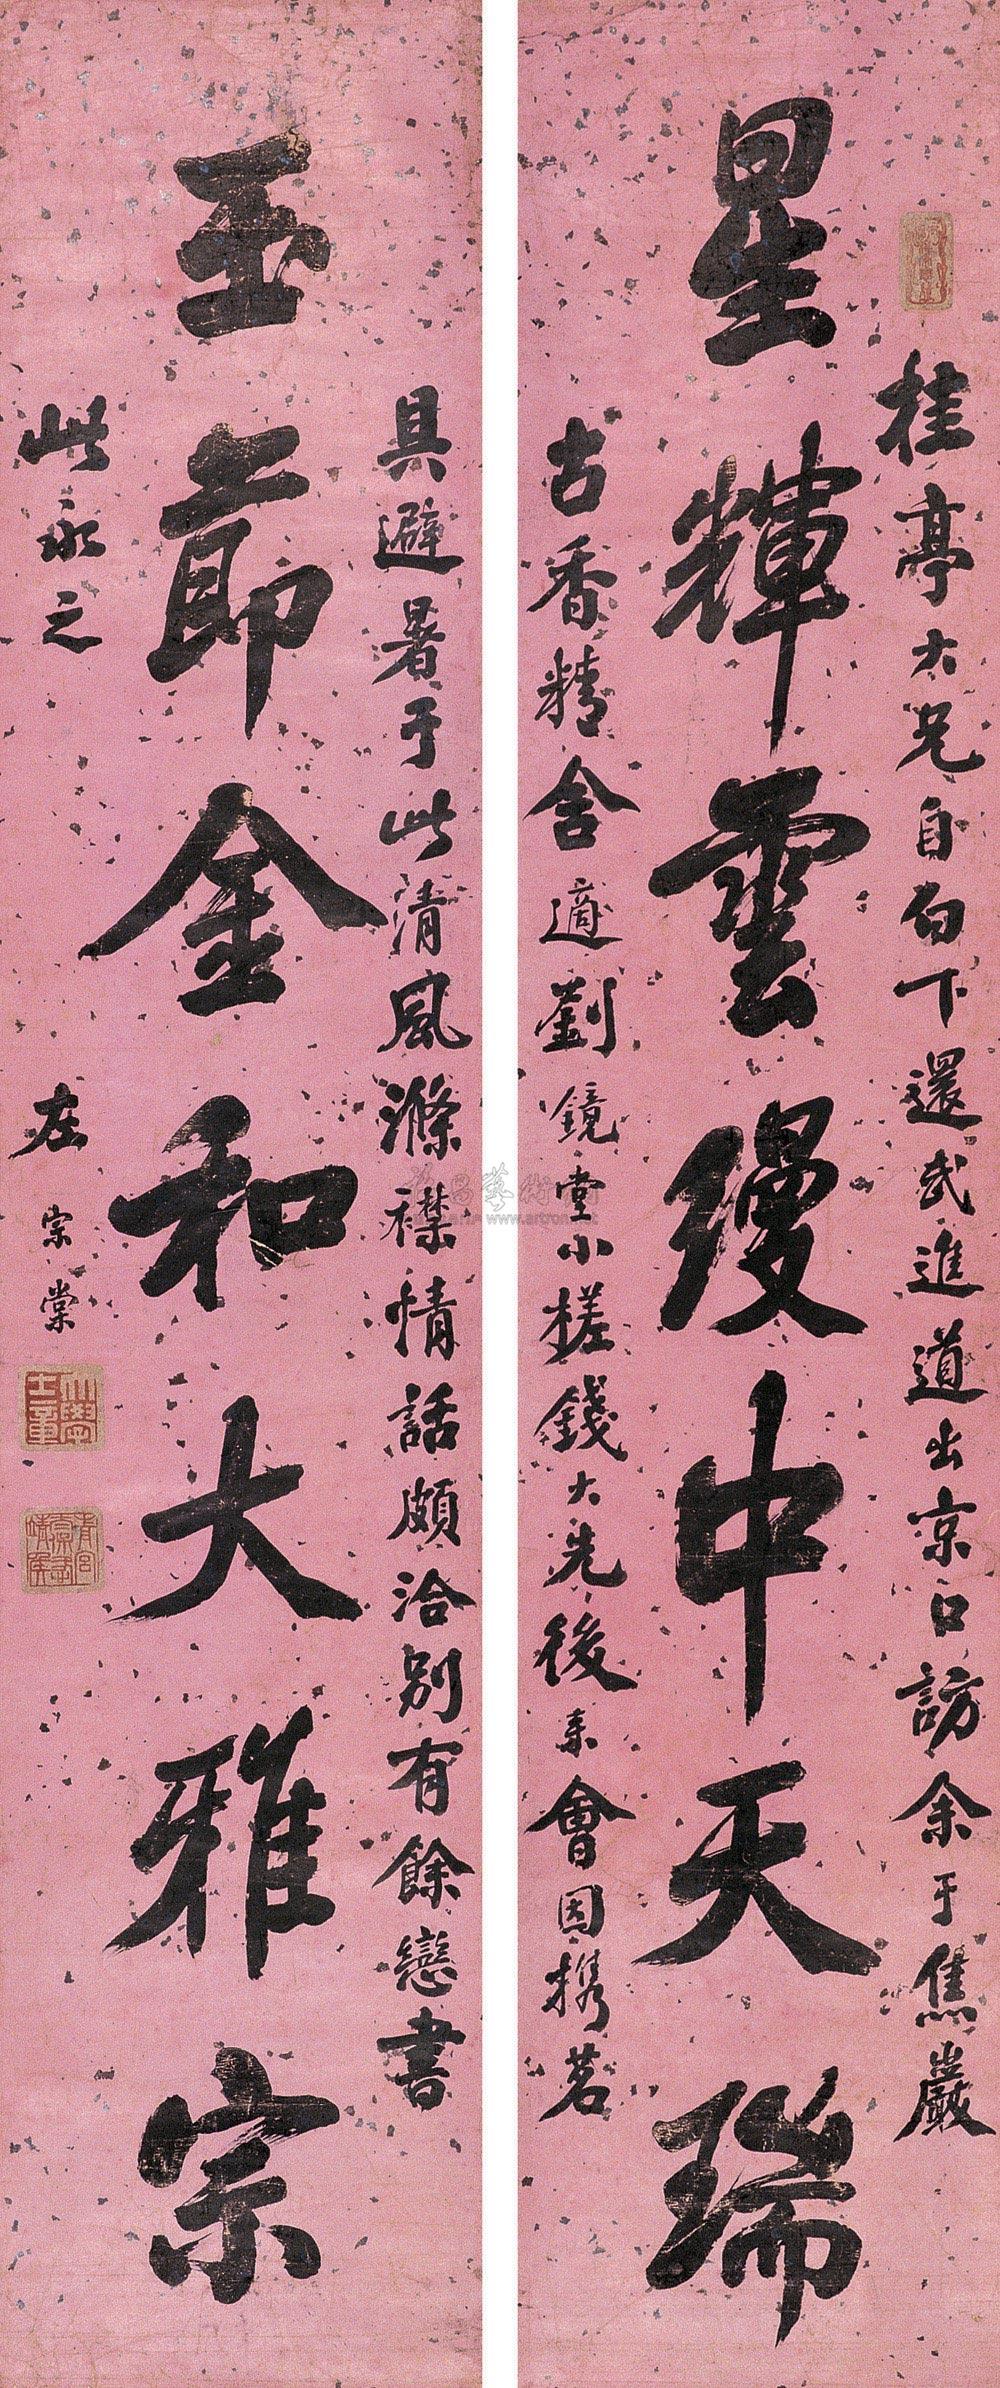 桂亭大兄自白下還武進道出京口訪余于焦巖
星輝雲縵中天瑞
古香精舍適劉鏡堂小槎錢大先後來會因携茗
具避暑于此清風滌襟情話頗洽別有餘戀書
玉節金和大雅宗
此永之
左宗棠